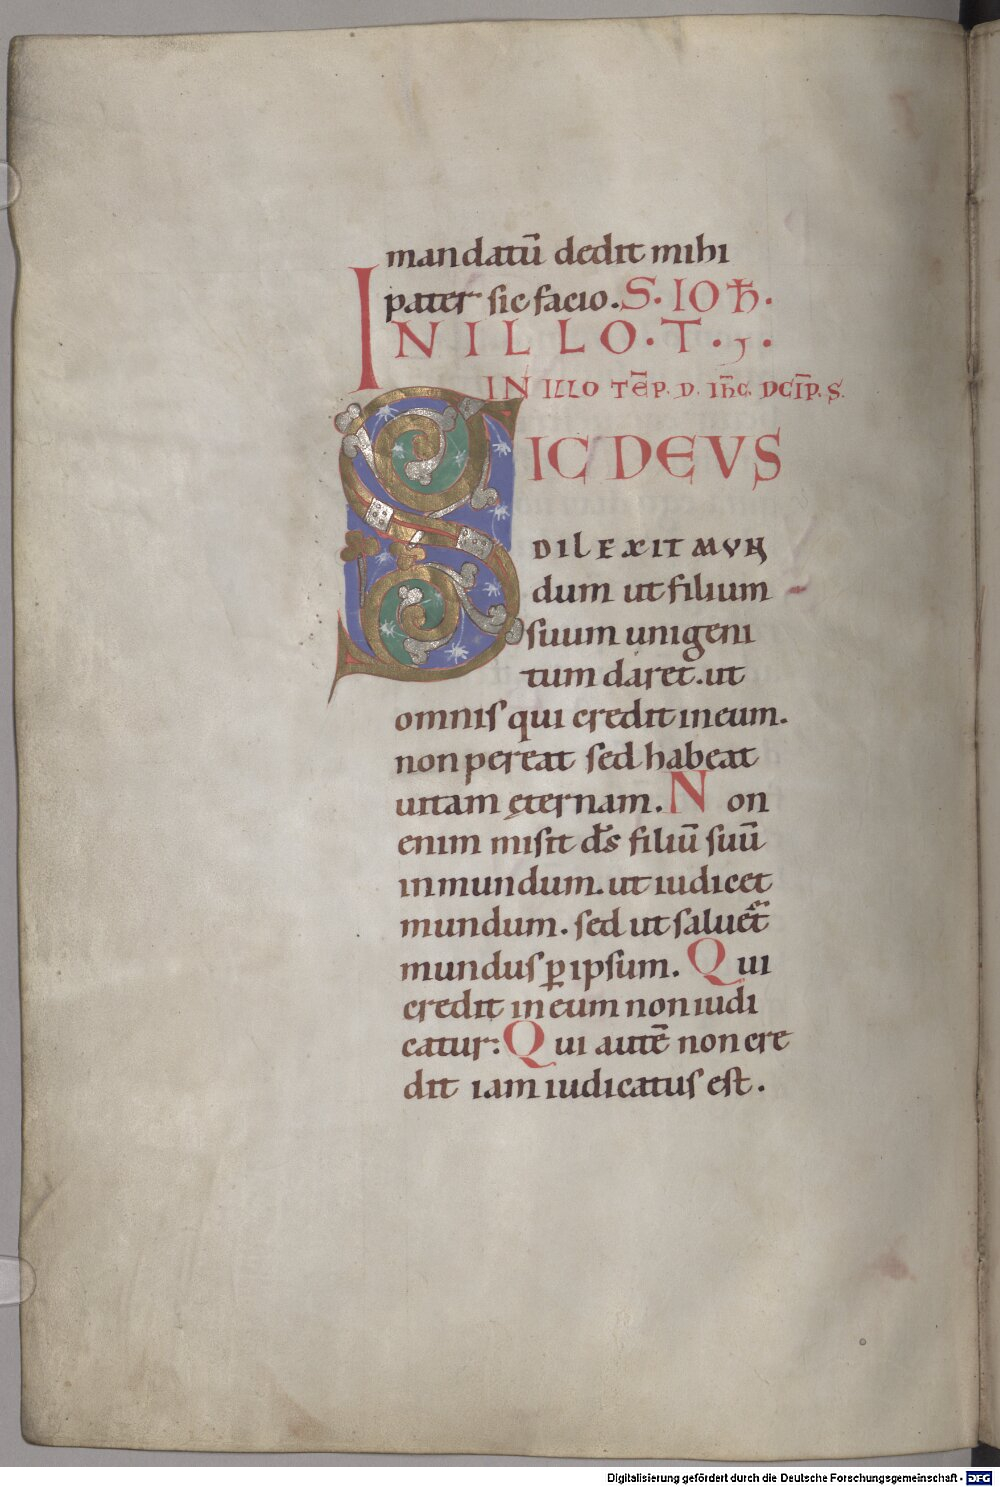 mandatū dedit mihi
pater sic facio. S. IOH̄.
IN ILLO. T. ;.
IN ILLO TĒP. D. IH̄C DCĪP. S.
SIC DEUS
DILEXIT MUN
dum ut filium
suum unigeni
tum daret. ut
omnis qui credit in eum.
non pereat sed habeat
uitam ęternam. Non
enim misit d̄s filiū suū
in mundum. ut iudicet
mundum. sed ut saluet̄
mundus ꝑ ipsum. Qui
credit in eum non iudi
catur: Qui autē non cre
dit iam iudicatus est.
Digitalisierung gefördert durch die Deutsche Forschungsgemeinschaft - DFG